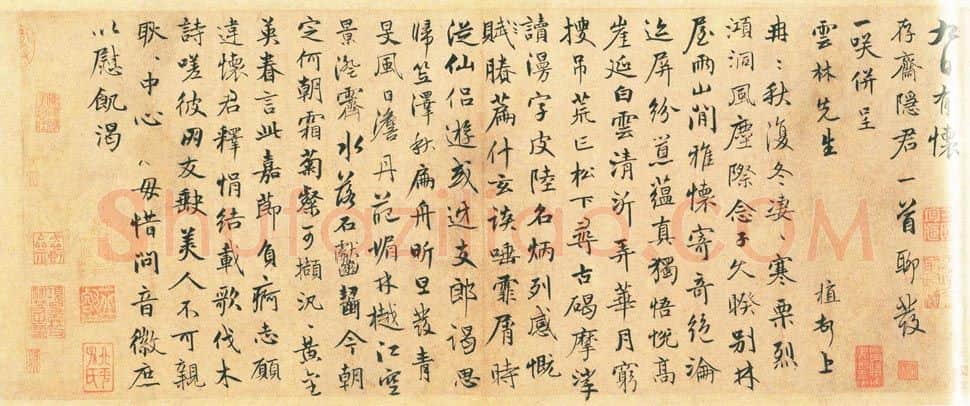 九日有懷
存齋隱君一首聊發
一咲併呈
雲林先生 植 上
冉〻秋復冬淒〻寒栗烈
澒洞風塵際念子久睽別林
屋兩山間雅懷寄奇絕淪
迤屏紛 蘊真獨悟悅高
崖延白雲清泝弄華月窮
搜吊荒亡松下尋古碣摩挲
讀漫字皮陸名炳列感慨
賦 篇什玄談唾霏屑時
從仙侶遊或 支郎謁思
歸笠澤秋扁舟昕旦發青
旻風日澹丹葩媚林樾江空
景澄霽水落石 齧今朝
定何朝霜菊粲可擷況〻黃金
英眷言此嘉節負痾志願
違懷君釋悁結載歌伐木
詩嗟彼朋友缺美人不可親
耿〻中心 毋惜問音徽庶
以慰飢渴
Shufaziliao.COM